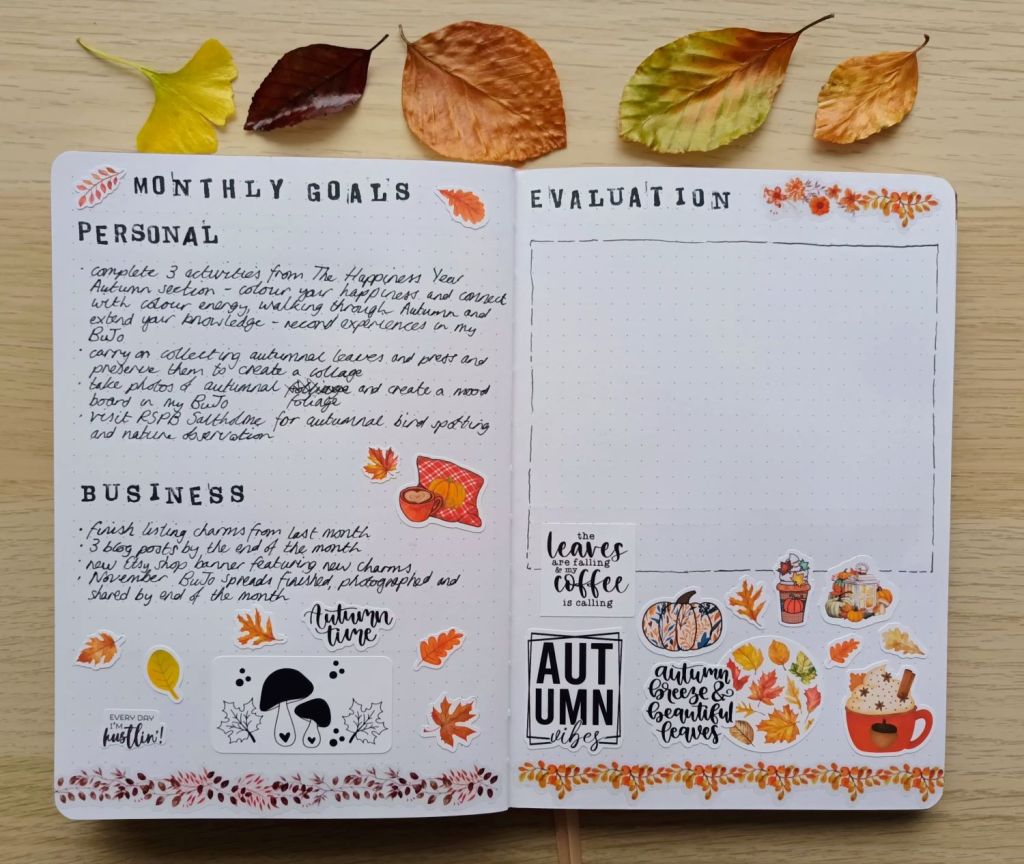 MONTHLY GOALS
PERSONAL
· complete 3 activities from The Happiness Year
Autumn section - colour your happiness and connect
with colour energy, walking through Autumn and
extend your knowledge - record experiences in my
BuJo
· carry on collecting autumnal leaves and press and
preserve them to create a collage
· take photos of autumnal and create a mood
board in my BuJo foliage
· visit RSPB Saltholme for autumnal bird spotting
and nature observation
BUSINESS
· finish listing charms from last month
· 3 blog posts by the end of the month
· new Etsy shop banner featuring new charms
· November BuJo spreads finished, photographed and
shared by end of the month
Autumn
time
EVERY DAY
I'M
hustlin'!
EVALUATION
the
leaves
are falling
& my
coffee
is calling
AUT
UMN
vibes
autumn
breeze &
beautiful
leaves